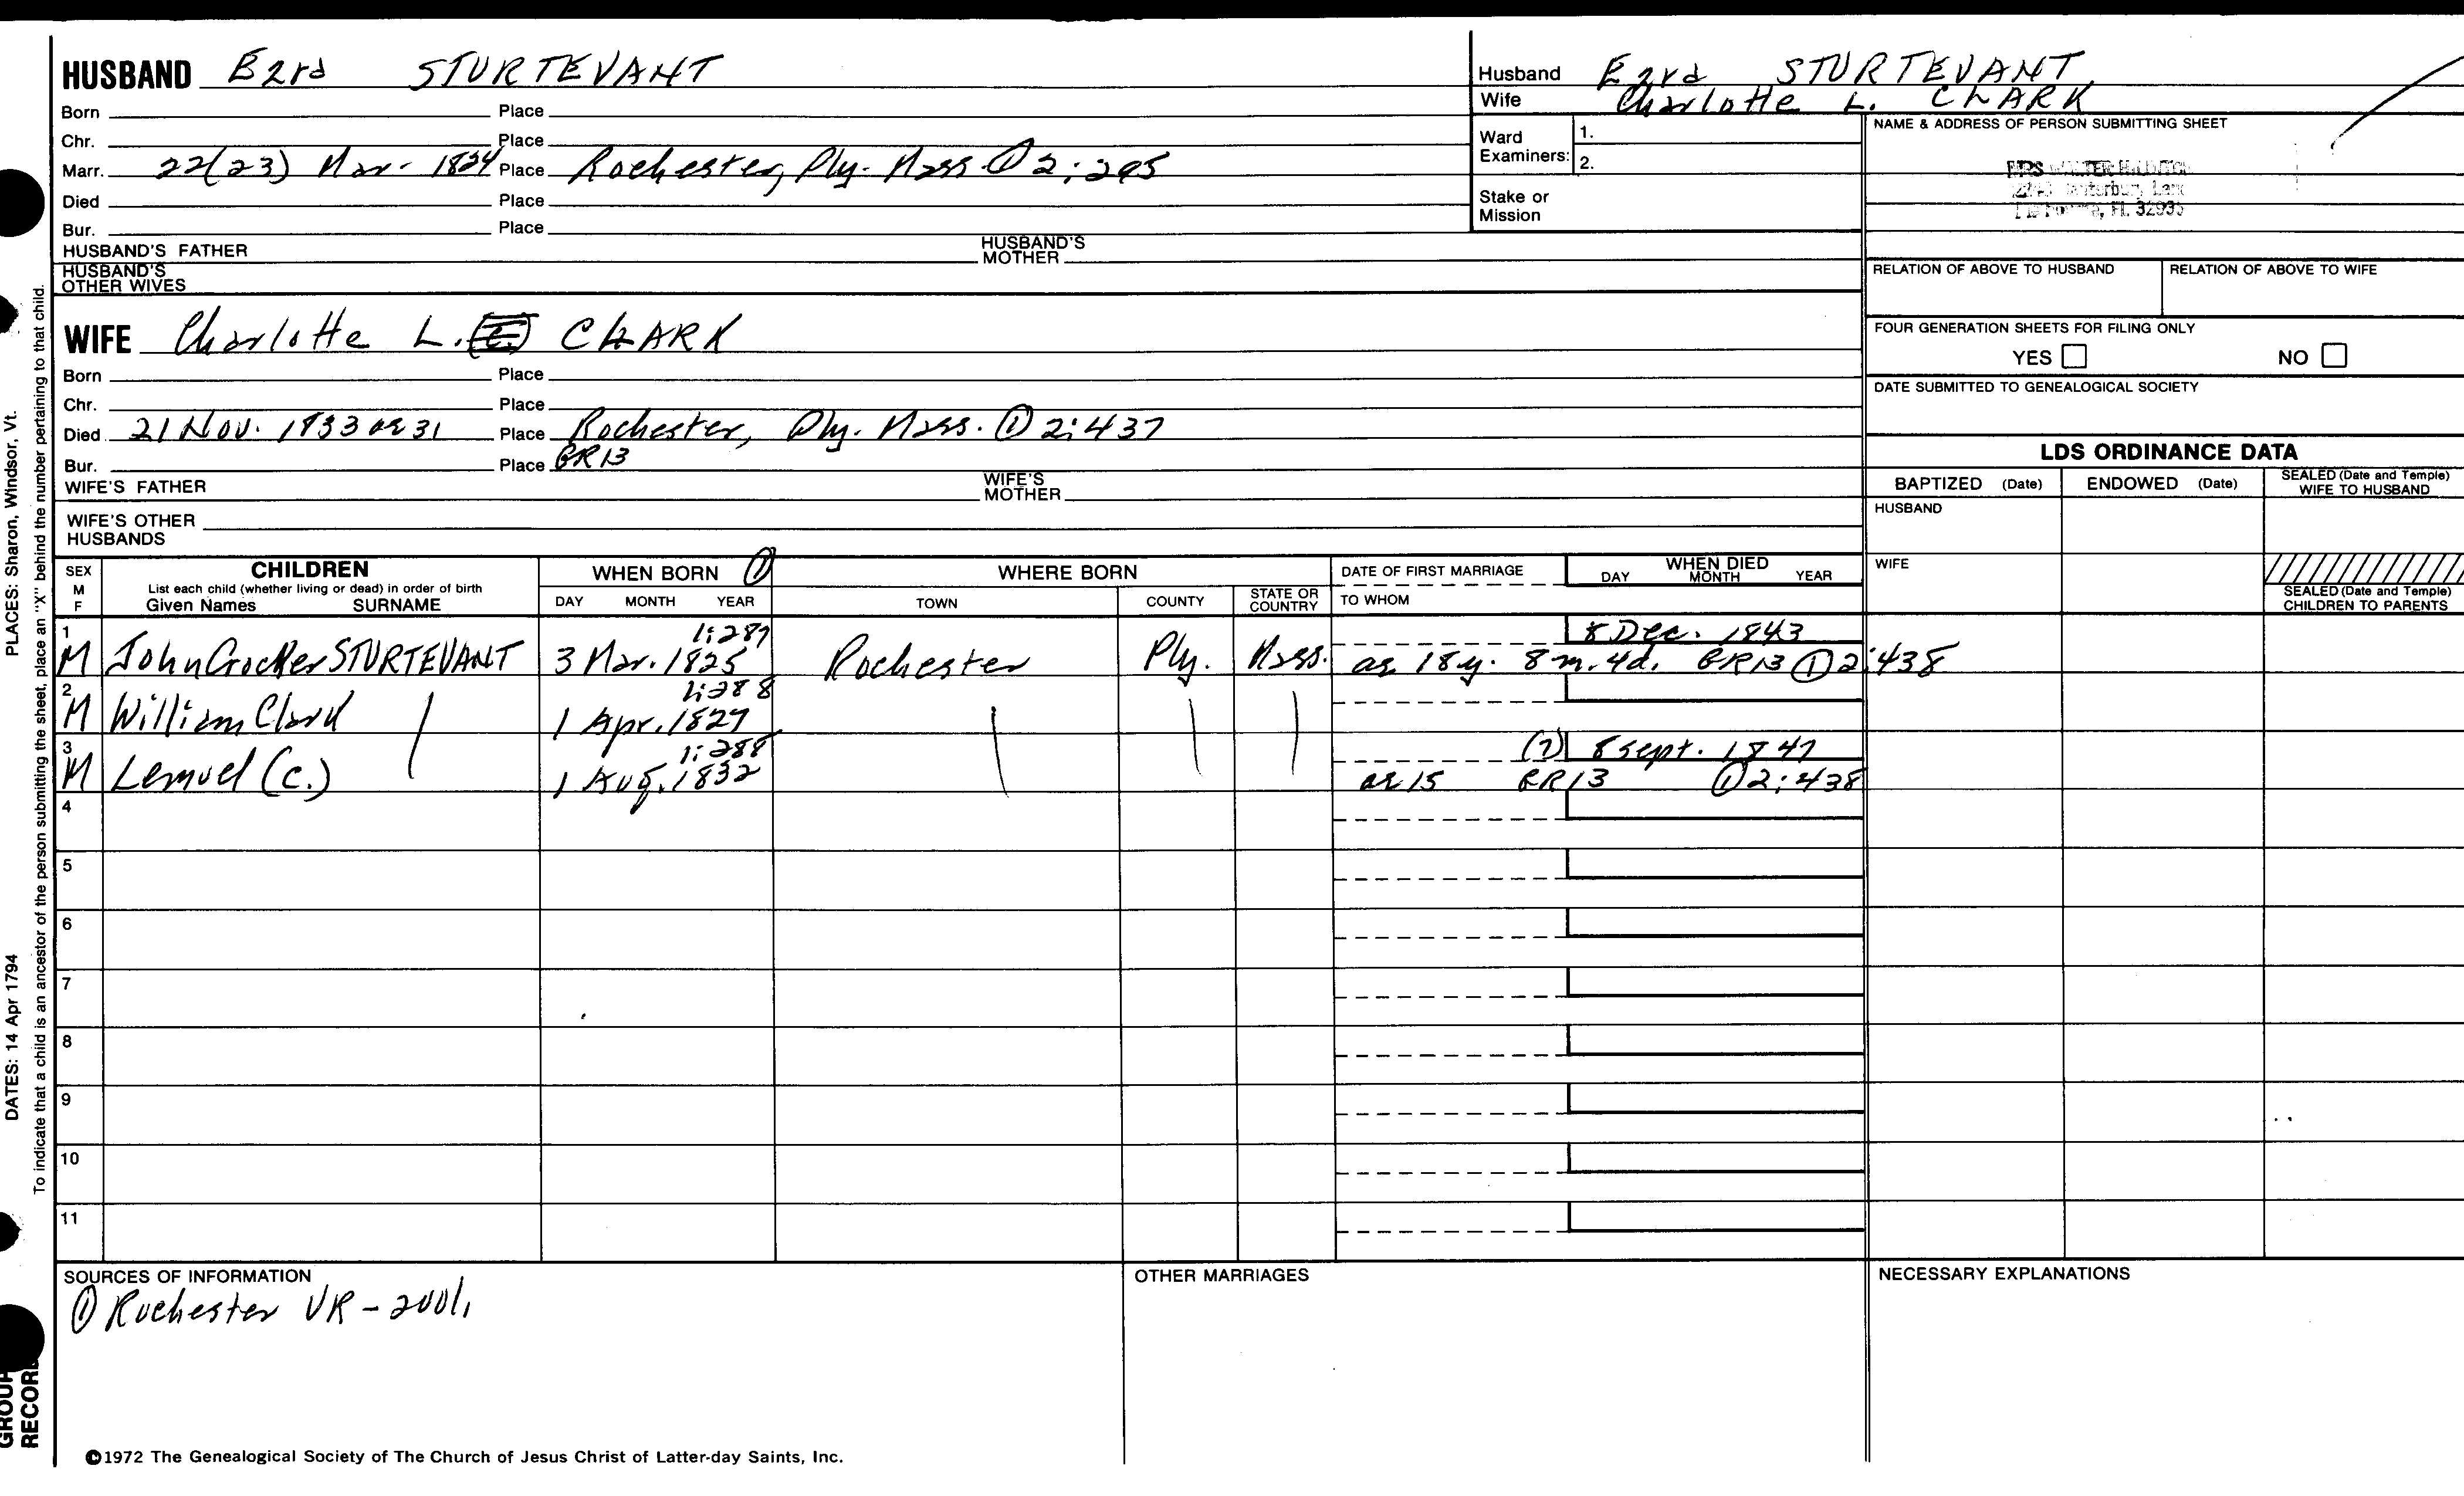 HUSBAND Ezra STURTEVANT
Born Place
Chr. Place
Marr. 22(23) Mar. 1824 Place Rochester, Ply. Mass. ① 2:295
Died Place
Bur. Place
HUSBAND'S FATHER HUSBAND'S MOTHER
HUSBAND'S OTHER WIVES
WIFE Charlotte L. CLARK
Born Place
Chr. Place
Died 21 Nov. 1833 ae 31 Place Rochester, Ply. Mass. ① 2:437
Bur. Place GR13
WIFE'S FATHER WIFE'S MOTHER
WIFE'S OTHER HUSBANDS
Husband Ezra STURTEVANT
Wife Charlotte L. CLARK
Ward Examiners: 1.
2.
Stake or Mission
NAME & ADDRESS OF PERSON SUBMITTING SHEET
MRS WALTER
Lane
FL 32935
RELATION OF ABOVE TO HUSBAND RELATION OF ABOVE TO WIFE
FOUR GENERATION SHEETS FOR FILING ONLY
YES NO
DATE SUBMITTED TO GENEALOGICAL SOCIETY
LDS ORDINANCE DATA
BAPTIZED (Date) ENDOWED (Date) SEALED (Date and Temple) WIFE TO HUSBAND
HUSBAND
WIFE
SEALED (Date and Temple) CHILDREN TO PARENTS
SEX M F CHILDREN WHEN BORN ① WHERE BORN DATE OF FIRST MARRIAGE WHEN DIED
List each child (whether living or dead) in order of birth
Given Names SURNAME DAY MONTH YEAR TOWN COUNTY STATE OR COUNTRY TO WHOM DAY MONTH YEAR
1 1:287 8 Dec. 1843
M John Crocker STURTEVANT 3 Mar. 1825 Rochester Ply. Mass. ae 18 y. 8 m. 4d. GR13 ① 2:438
2 1:288
M William Clark 1 Apr. 1827
3 1:288 (?) 8 Sept. 1847
M Lemuel (C.) 1 Aug. 1832 ae 15 GR13 ① 2:438
4
5
6
7
8
9
10
11
SOURCES OF INFORMATION OTHER MARRIAGES NECESSARY EXPLANATIONS
① Rochester VR -
©1972 The Genealogical Society of The Church of Jesus Christ of Latter-day Saints, Inc.
PLACES: Sharon, Windsor, Vt.
DATES: 14 Apr 1794
To indicate that a child is an ancestor of the person submitting the sheet, place an "X" behind the number pertaining to that child.
GROUP
RECORD